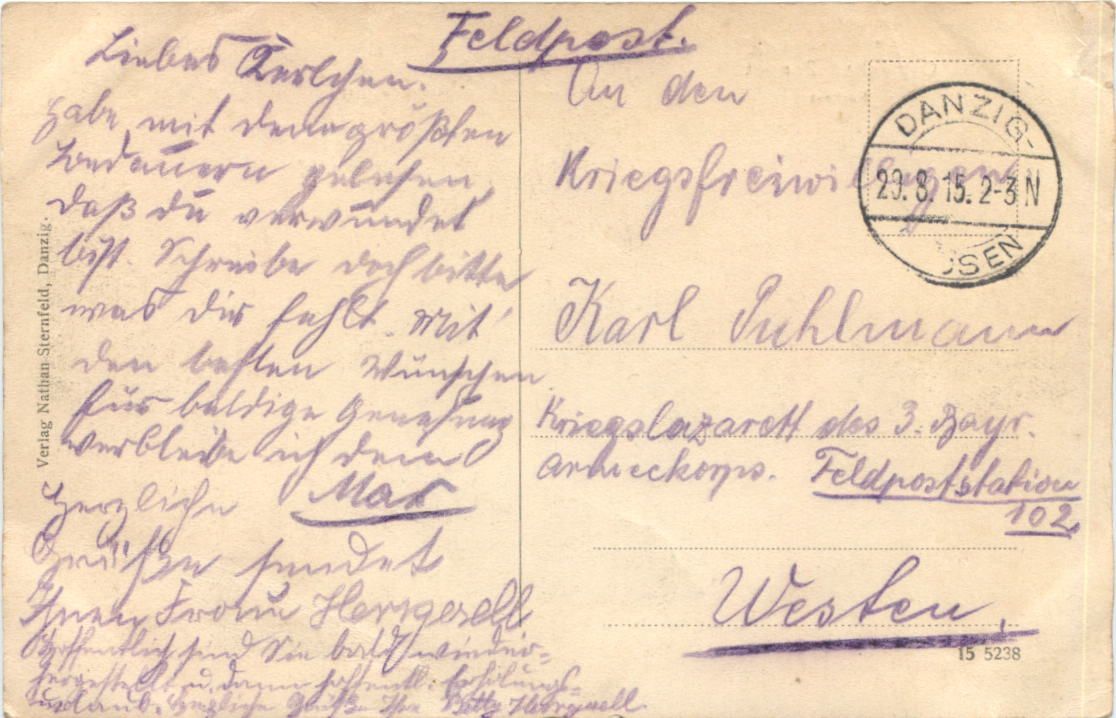 Feldpost.
Liebes Karlchen.
Habe mit dem größten
Bedauern gelesen,
daß du verwundet
bist. Schreibe doch bitte
was dir fehlt. Mit
den besten Wünschen
für baldige Genesung
verbleibe ich dein
Max
Herzliche
Grüße sendet
Ihnen Frau
Hoffentlich sind Sie bald wieder-
hergestellt u. dann hoffentl. Erholungs-
urlaub. Herzliche Grüße Ihre Betty
An den
Kriegsfreiwilligen
Karl Puhlmann
Kriegslazarett des 3. Bayr.
Armeekorps. Feldpoststation
102.
Westen.
DANZIG-
29.8.15.2-3 N
SEN
Verlag Nathan Sternfeld, Danzig.
15 5238